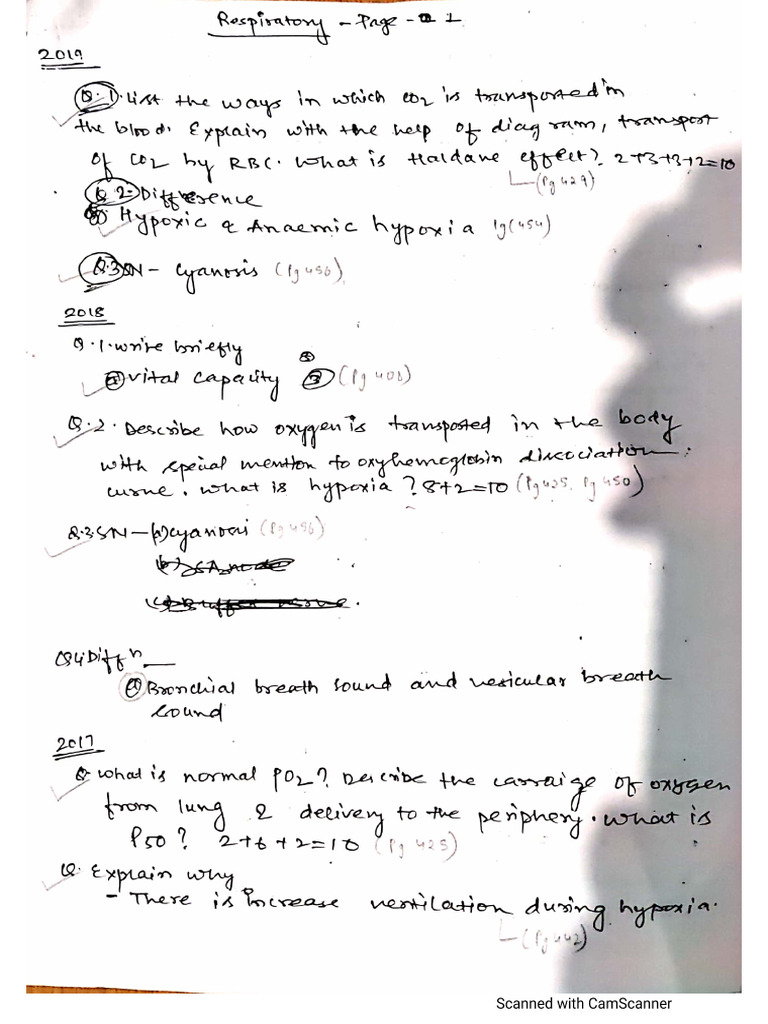 Respiratory - Page - 1
2019
Q.1. List the ways in which CO2 is transported in
the blood. Explain with the help of diagram, transport
of CO2 by RBC. What is Haldane effect? 2+3+3+2=10
(Pg 429)
Q.2. Difference
Hypoxic & Anaemic hypoxia Pg (454)
Q.3 SN - Cyanosis (Pg 456)
2018
Q.1. Write briefly
Vital capacity (Pg 408)
Q.2. Describe how oxygen is transposted in the body
with special mention to oxyhemoglobin dissociation
curve. What is hypoxia? 8+2=10 (Pg 425, Pg 450)
Q.3. SN - (a) cyanosis (Pg 456)
Q4 Diff n
(a) Bronchial breath sound and vesicular breath
sound
2017
Q. What is normal PO2? Describe the carraige of oxygen
from lung & delivery to the periphery. What is
P50? 2+6+2=10 (Pg 425)
Q. Explain why
- There is increase ventilation during hypoxia.
(Pg 442)
Scanned with CamScanner